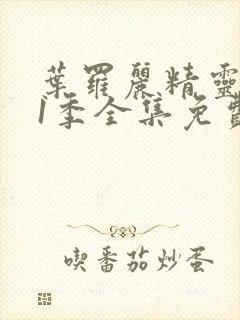 葉羅麗精靈
1季全集免費
喫番茄炒蛋